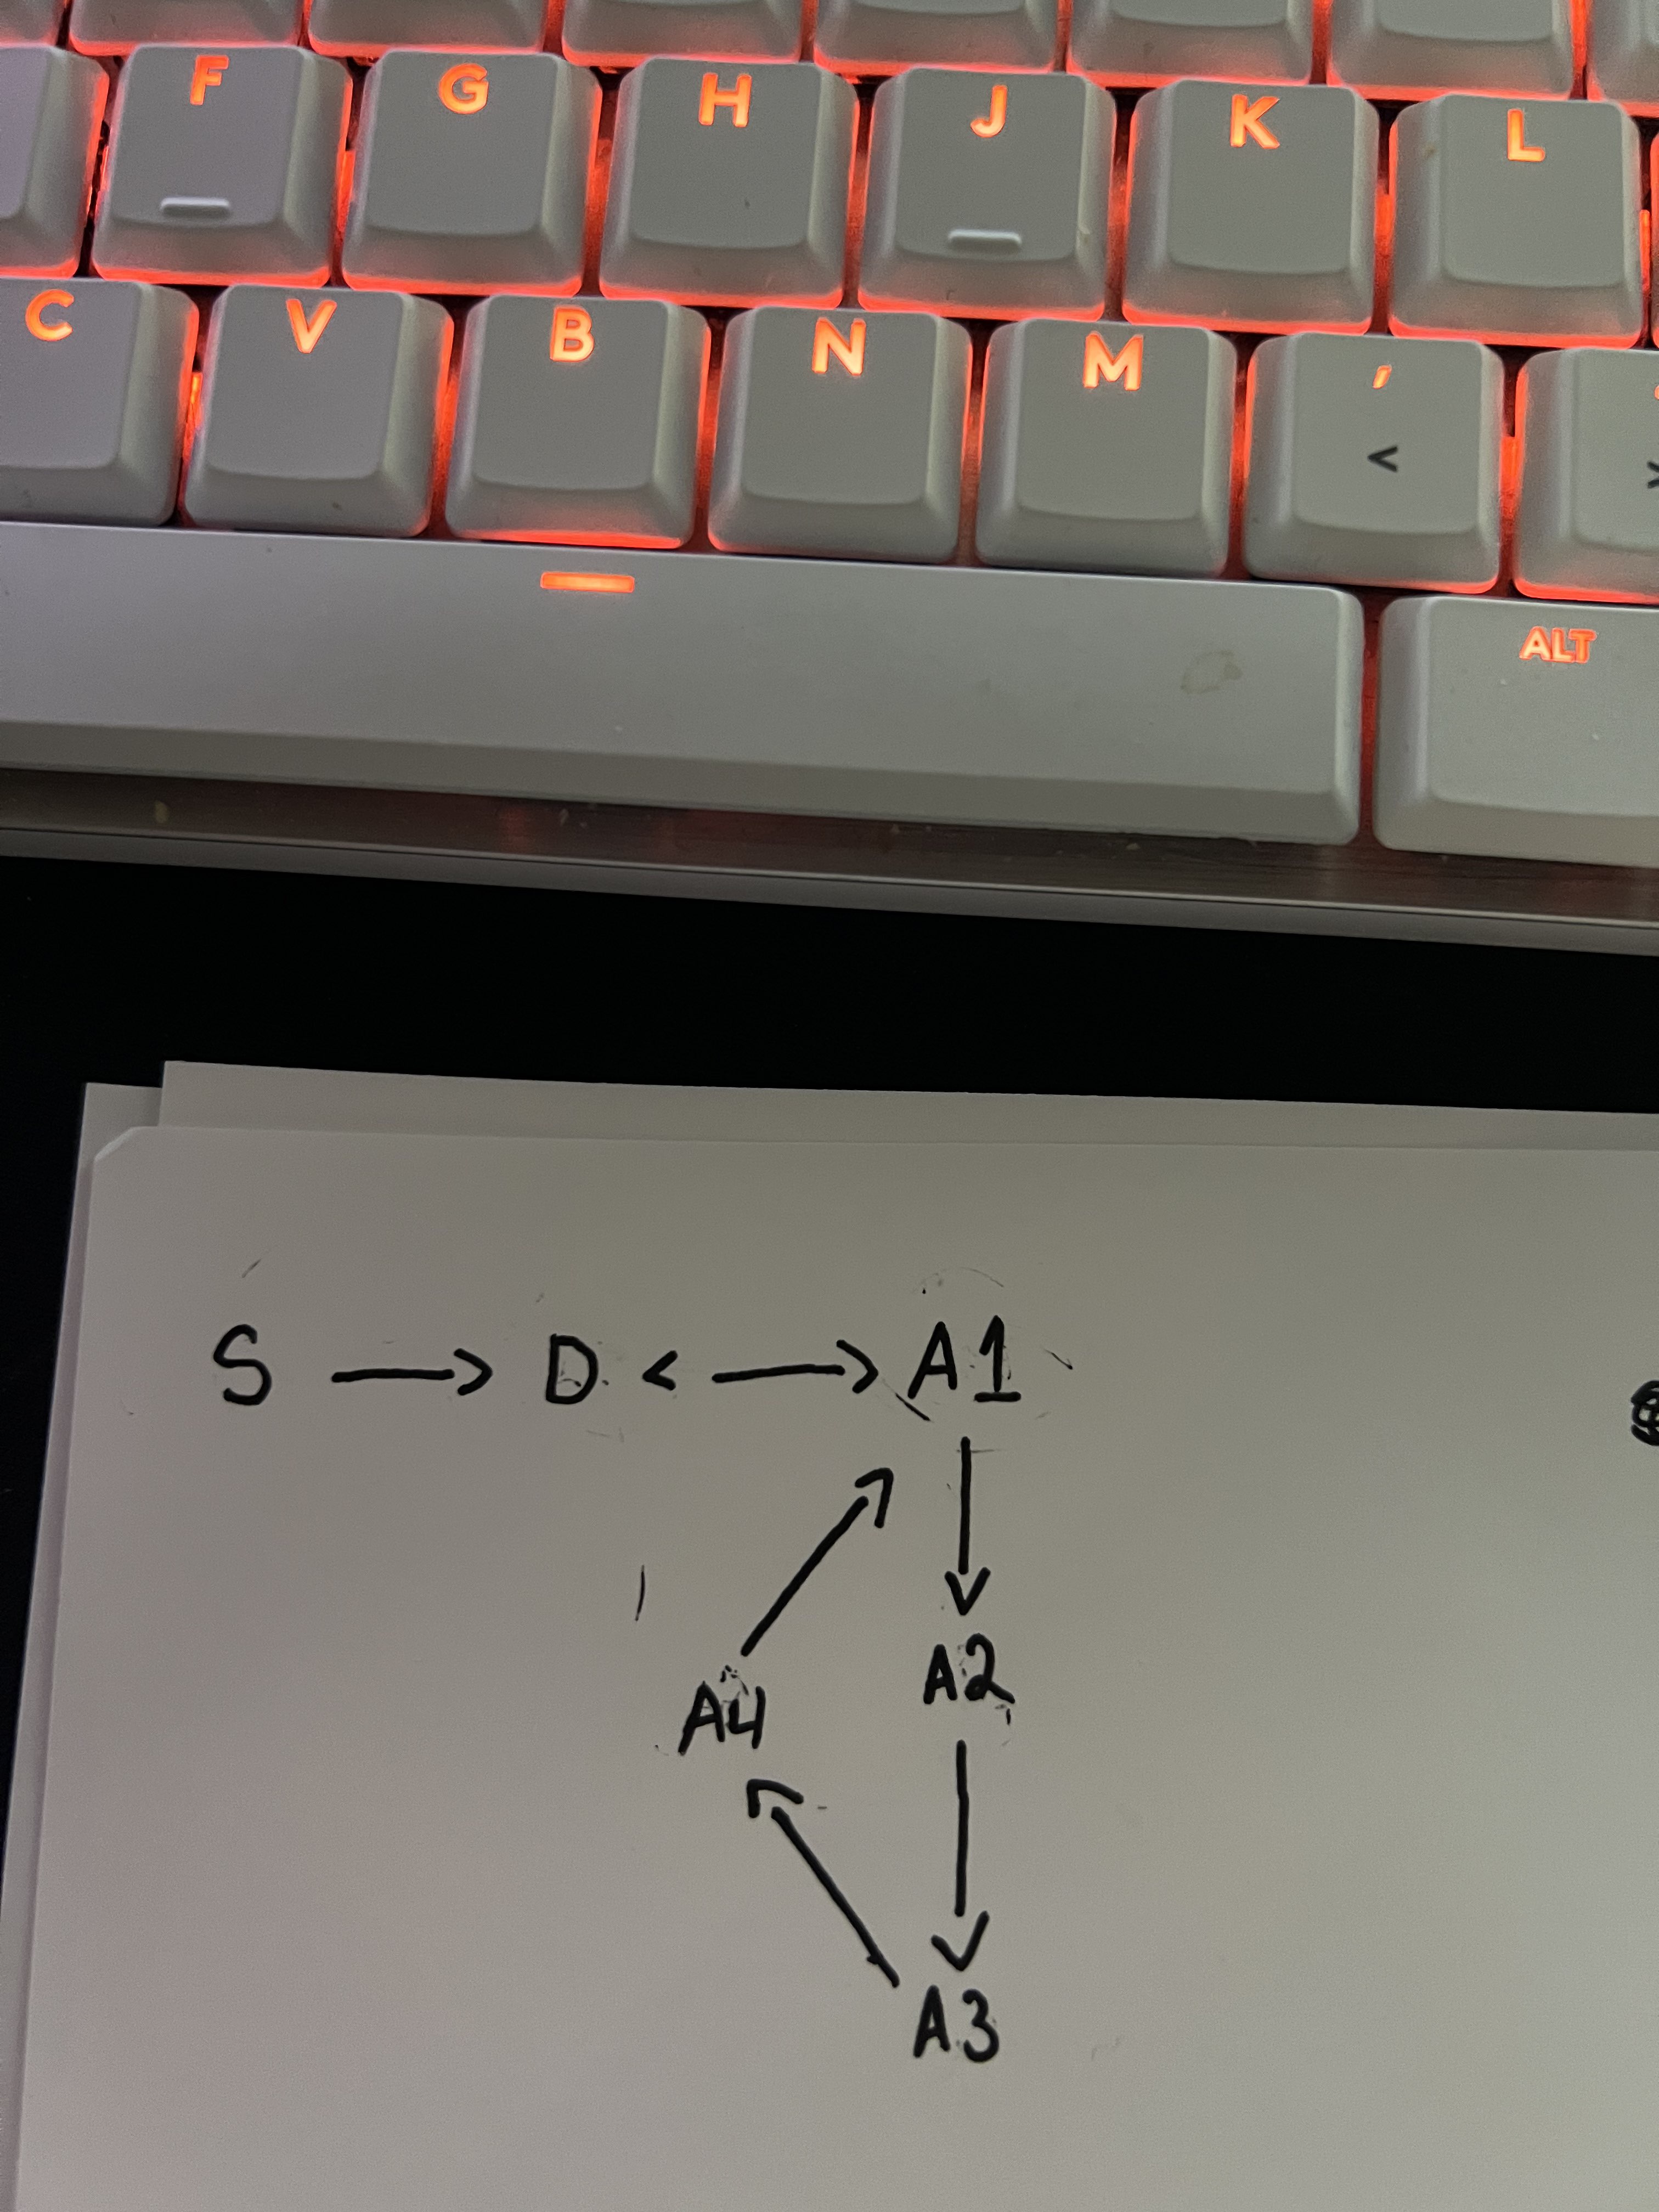 F G H J K L
C V B N M , <
ALT
S → D < → A1
A4 A2
A3